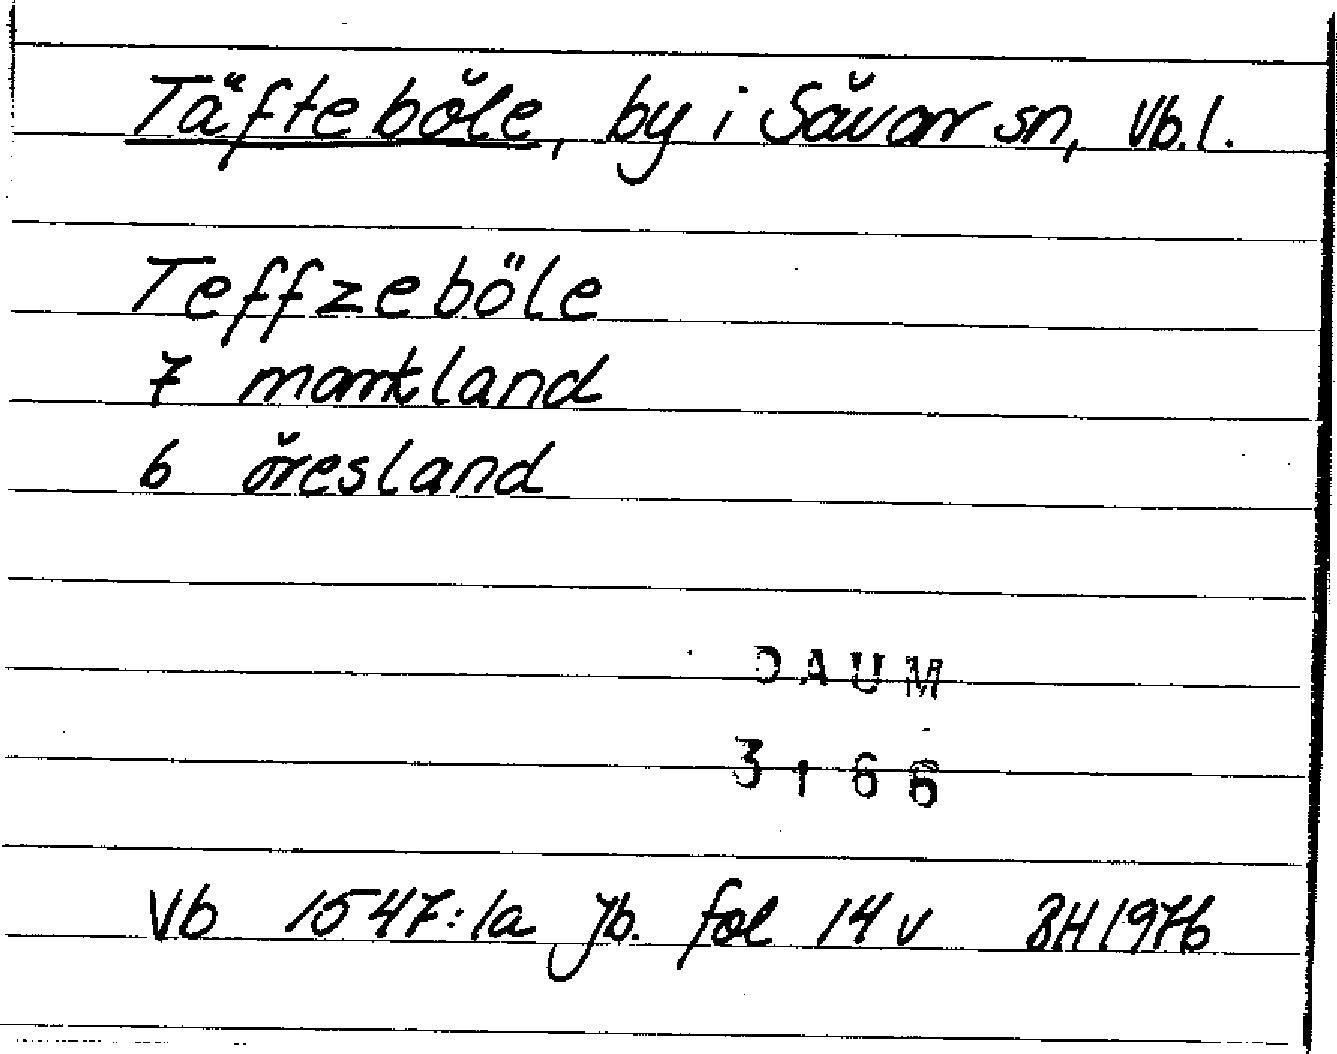 Täfteböle, by i Sävar sn, Vb.l.
Teffzeböle
7 markland
6 öresland
DAUM
3166
Vb 1547:1a jb. fol 14 v BH 1976